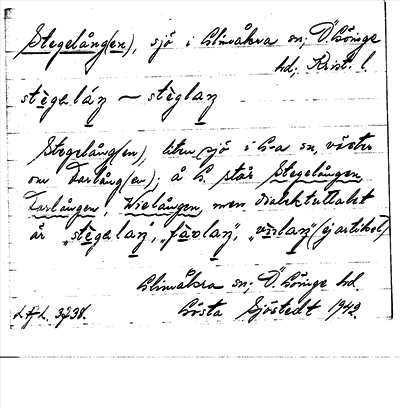 Stegelång(en), sjö i Glimåkra sn; Ö. Göinge
hd; Krist. l.
stègaláŋ — stèglaŋ
Stegelång(en), liten sjö i G-a sn, väster
om Farlång(en); å G. står Stegelången,
Farlången, Wielången, men dialektuttalet
är "stègalaŋ", "fàrlaŋ", "vìslaŋ" (ej artikel)
Glimåkra sn; Ö. Göinge hd.
L.f.L. 3738. Gösta Sjöstedt 1942.